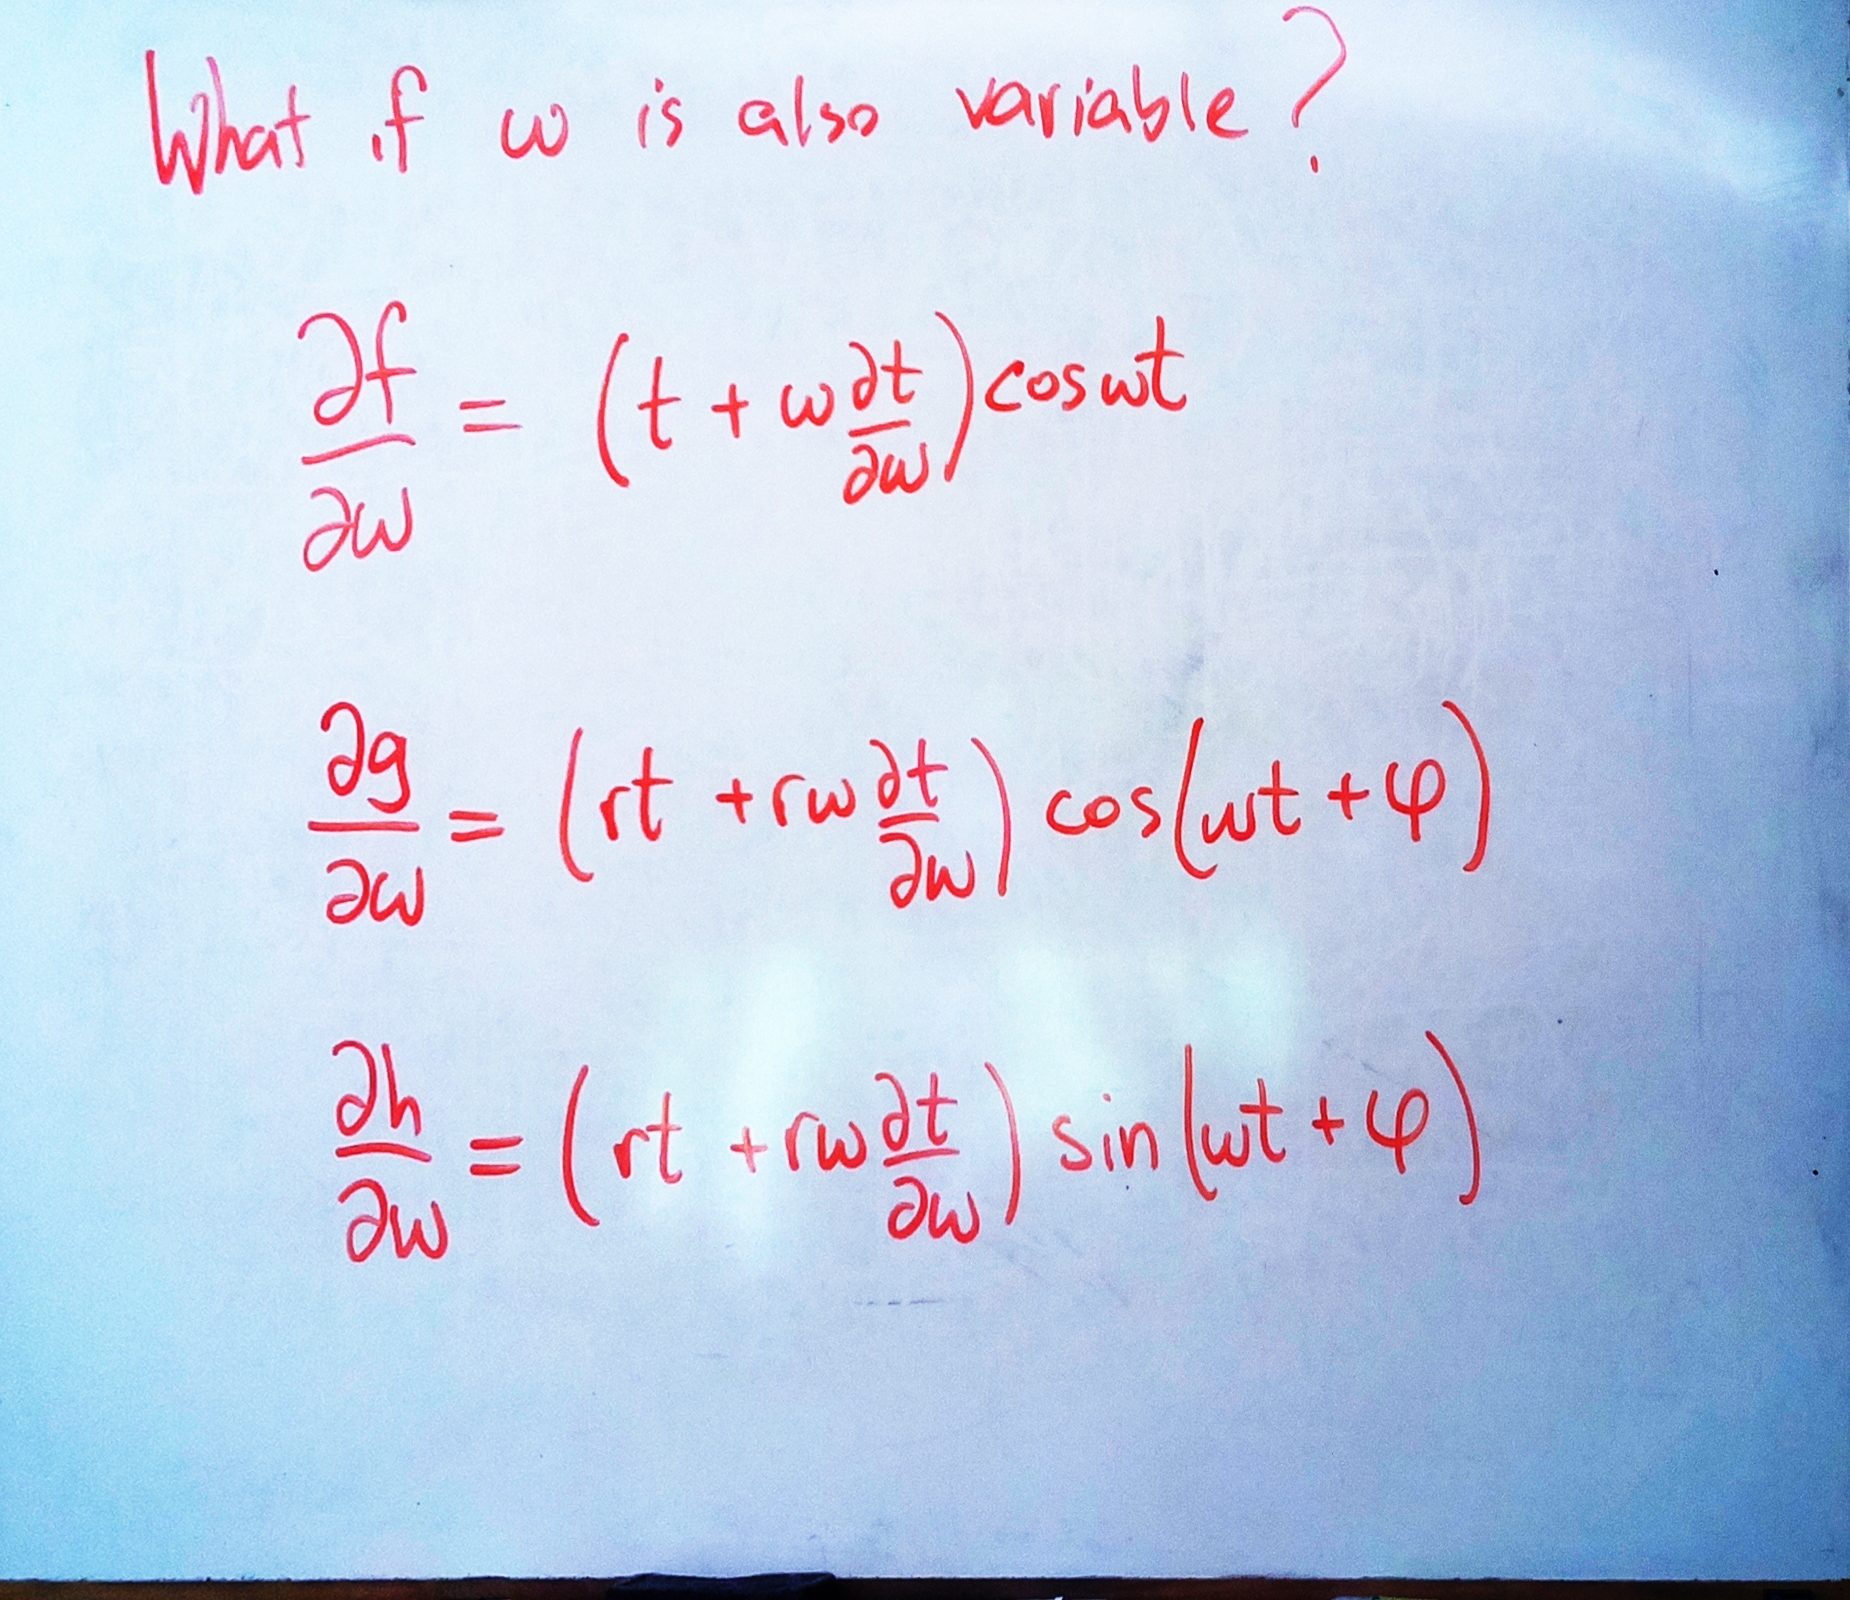 What if ω is also variable?
∂f/∂ω = (t + ω ∂t/∂ω) cos ωt
∂g/∂ω = (rt + rω ∂t/∂ω) cos(ωt + φ)
∂h/∂ω = (rt + rω ∂t/∂ω) sin(ωt + φ)